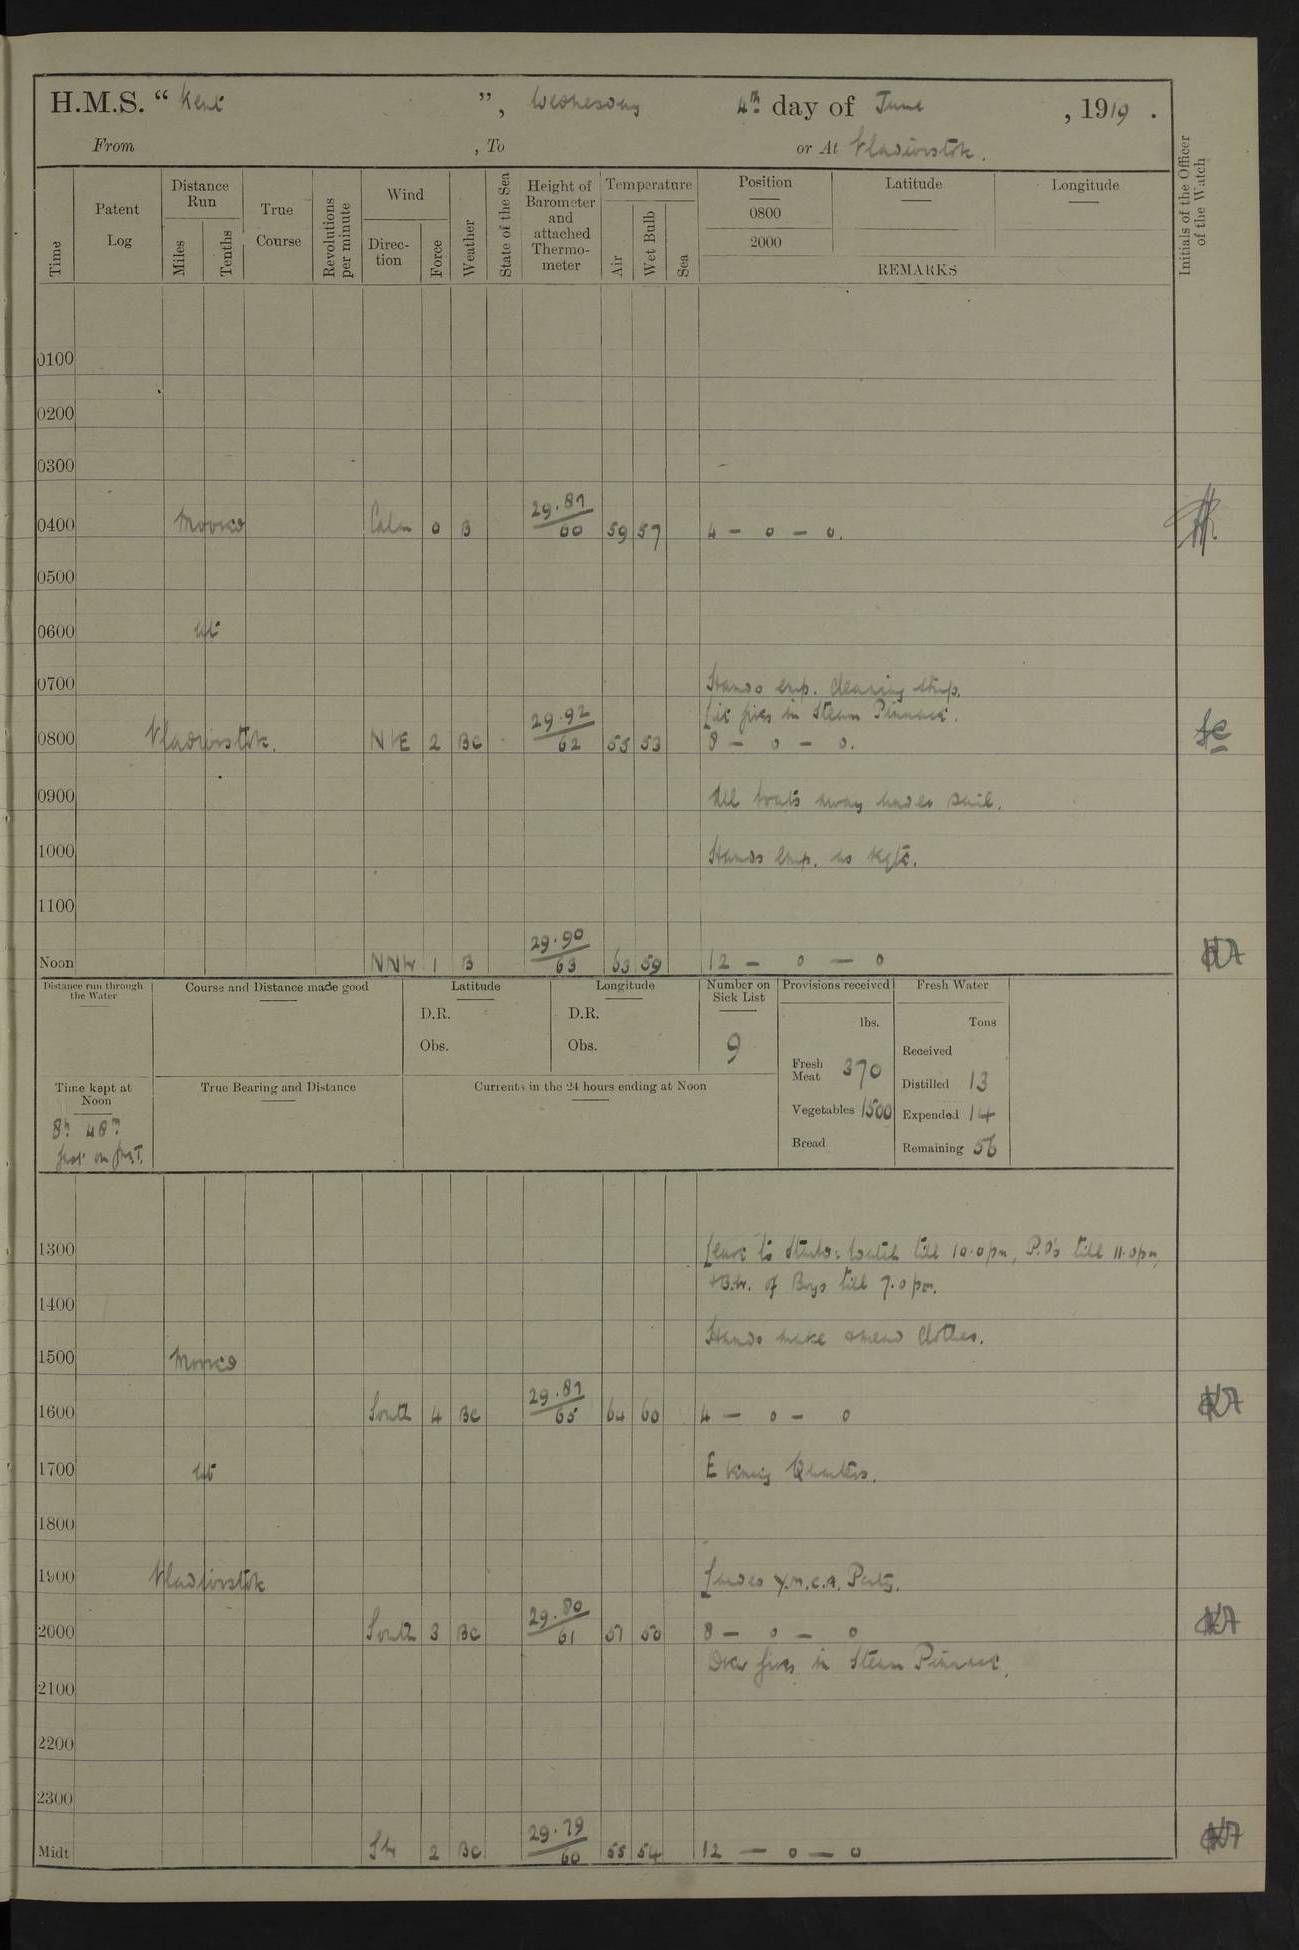 H.M.S. “ Kent ”, Wednesday 4th day of June , 1919 .
From , To or At Vladivostok.
Time
Patent Log
Distance Run
Miles
Tenths
True Course
Revolutions per minute
Wind
Direction
Force
Weather
State of the Sea
Height of Barometer and attached Thermometer
Temperature
Air
Wet Bulb
Sea
Position
0800
2000
Latitude
Longitude
REMARKS
Initials of the Officer of the Watch
0100
0200
0300
0400 Moored Calm 0 B 29.87/60 59 57 4 — 0 — 0.
0500
0600 at
0700 Hands emp. cleaning ship.
Lit fires in Steam Pinnace.
0800 Vladivostok. 2 BC 29.92/62 55 53 8 — 0 — 0.
0900 All boats away under sail.
1000 Hands emp. as reqte.
1100
Noon NNW 1 B 29.90/63 63 59 12 — 0 — 0
Distance run through the Water
Course and Distance made good
Latitude
D.R.
Obs.
Longitude
D.R.
Obs.
Number on Sick List
9
Provisions received
lbs.
Fresh Meat 370
Vegetables 1500
Bread
Fresh Water
Tons
Received
Distilled 13
Expended 14
Remaining 56
Time kept at Noon
8h 48m
fast on G.M.T.
True Bearing and Distance
Currents in the 24 hours ending at Noon
1300 Leave to Starbd: Watch till 10.0 pm, P.O's till 11.0 pm,
of Boys till 7.0 pm.
1400
Hands make & mend clothes.
1500 Moored
1600 South 4 BC 29.81/65 64 60 4 — 0 — 0
1700 at Evening Quarters.
1800
1900 Vladivostok Landed Y.M.C.A. Party.
2000 South 3 BC 29.80/61 51 50 8 — 0 — 0
Drew fires in Steam Pinnace.
2100
2200
2300
Midt 2 BC 29.79/60 55 54 12 — 0 — 0